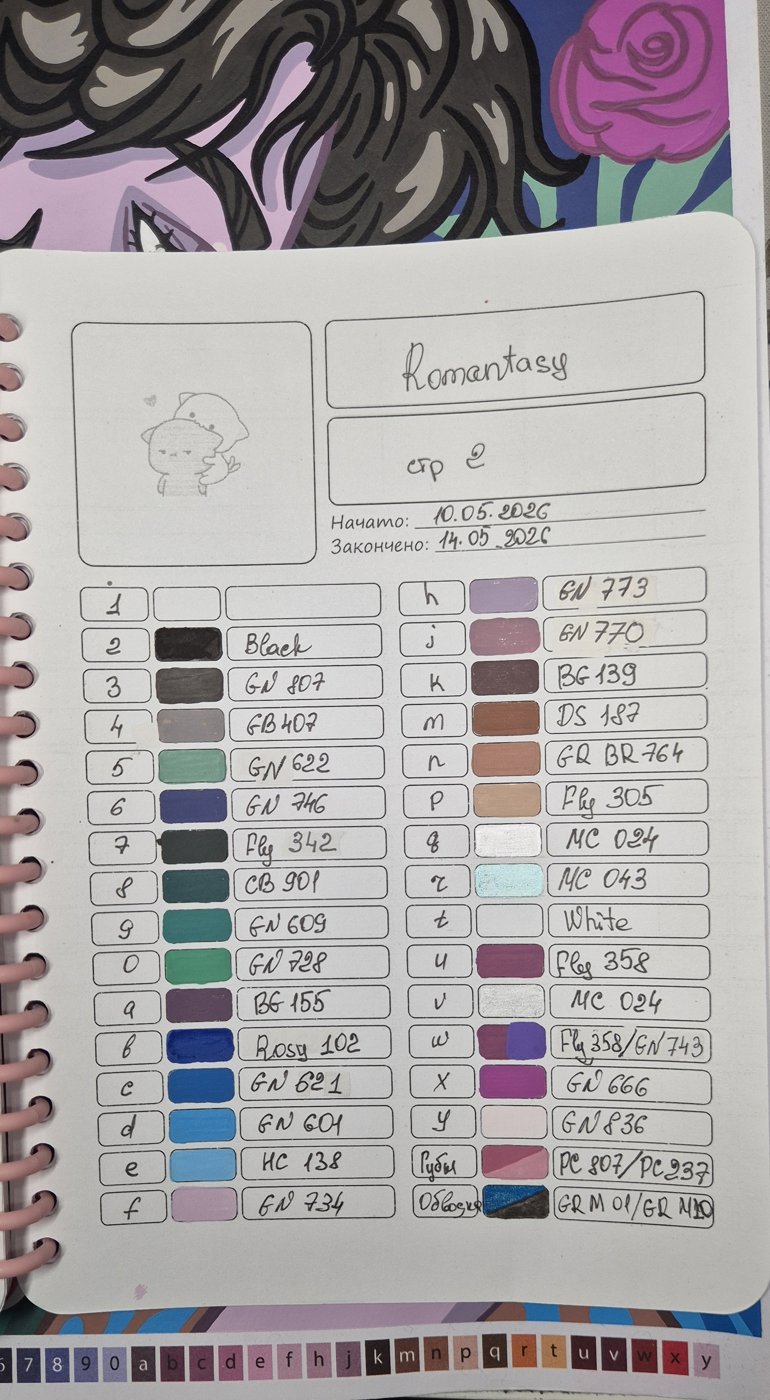 Romantasy
стр 2
Начато: 10.05.2026
Закончено: 14.05.2026
1
2 Black
3 GN 807
4 GB 407
5 GN 622
6 GN 746
7 Fly 342
8 CB 901
9 GN 609
0 GN 728
a BG 155
b Rosy 102
c GN 621
d GN 601
e HC 138
f GN 734
h GN 773
j GN 770
k BG 139
m DS 187
n GR BR 764
p Fly 305
q MC 024
r MC 043
t White
u Fly 358
v MC 024
w Fly 358/GN 743
x GN 666
y GN 836
Губы PC 807/PC 237
Обводка GR M 01/GR M
6 7 8 9 0 a b c d e f h j k m n p q r t u v w x y